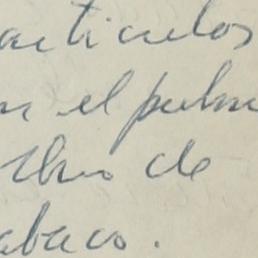 articulos
en el pulm
libro de
abaco.